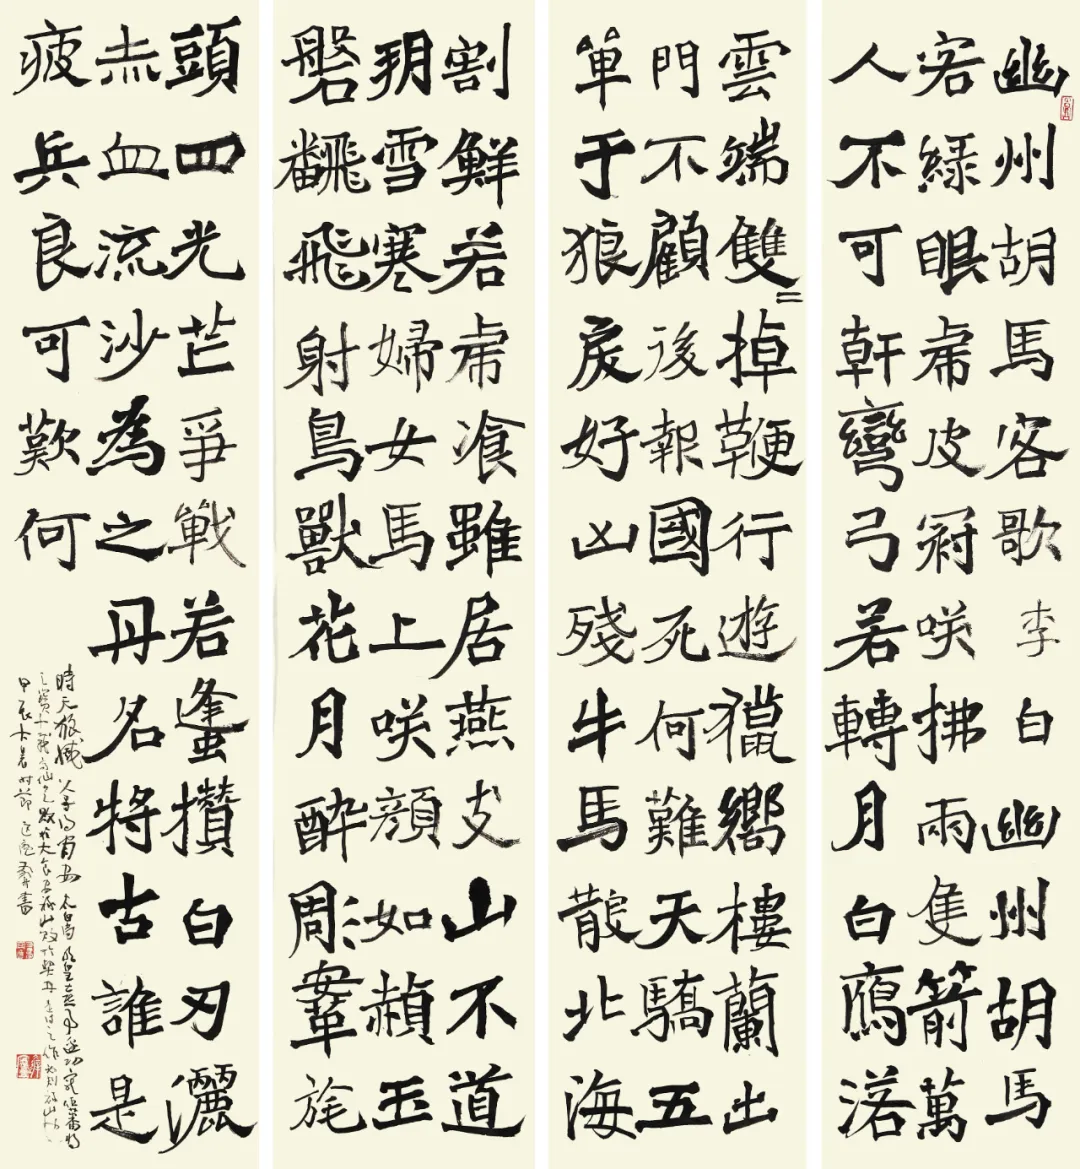 幽州胡馬客歌李白幽州胡馬
客緑眼虎皮冠咲拂兩隻箭萬
人不可幹彎弓若轉月白鴈落
雲端雙=掉鞭行遊獵嚮樓蘭出
門不顧後報國死何難天驕五
單于狼戾好凶殘牛馬散北海
割鮮若虎飡雖居燕支山不道
朔雪寒婦女馬上咲顏如赬玉
磐飜飛射鳥獸花月醉彫鞍旄
頭四光芒爭戰若蜂攢白刃灑
赤血流沙為之丹名將古誰是
疲兵良可歎何
時天狼滅父子得閑安
甲辰大暑時節